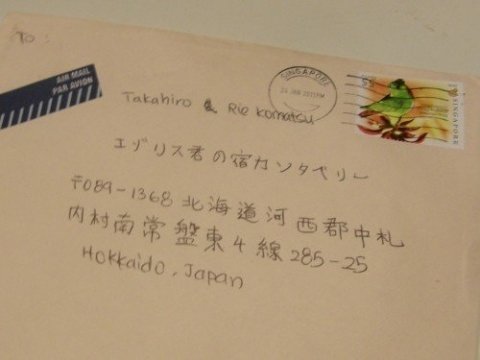 To:
AIR MAIL
PAR AVION
SINGAPORE
SINGAPORE
Takahiro & Rie Komatsu
エゾリス君の宿カンタベリー
〒089-1368 北海道河西郡中札
内村南常盤東4線285-25
Hokkaido, Japan